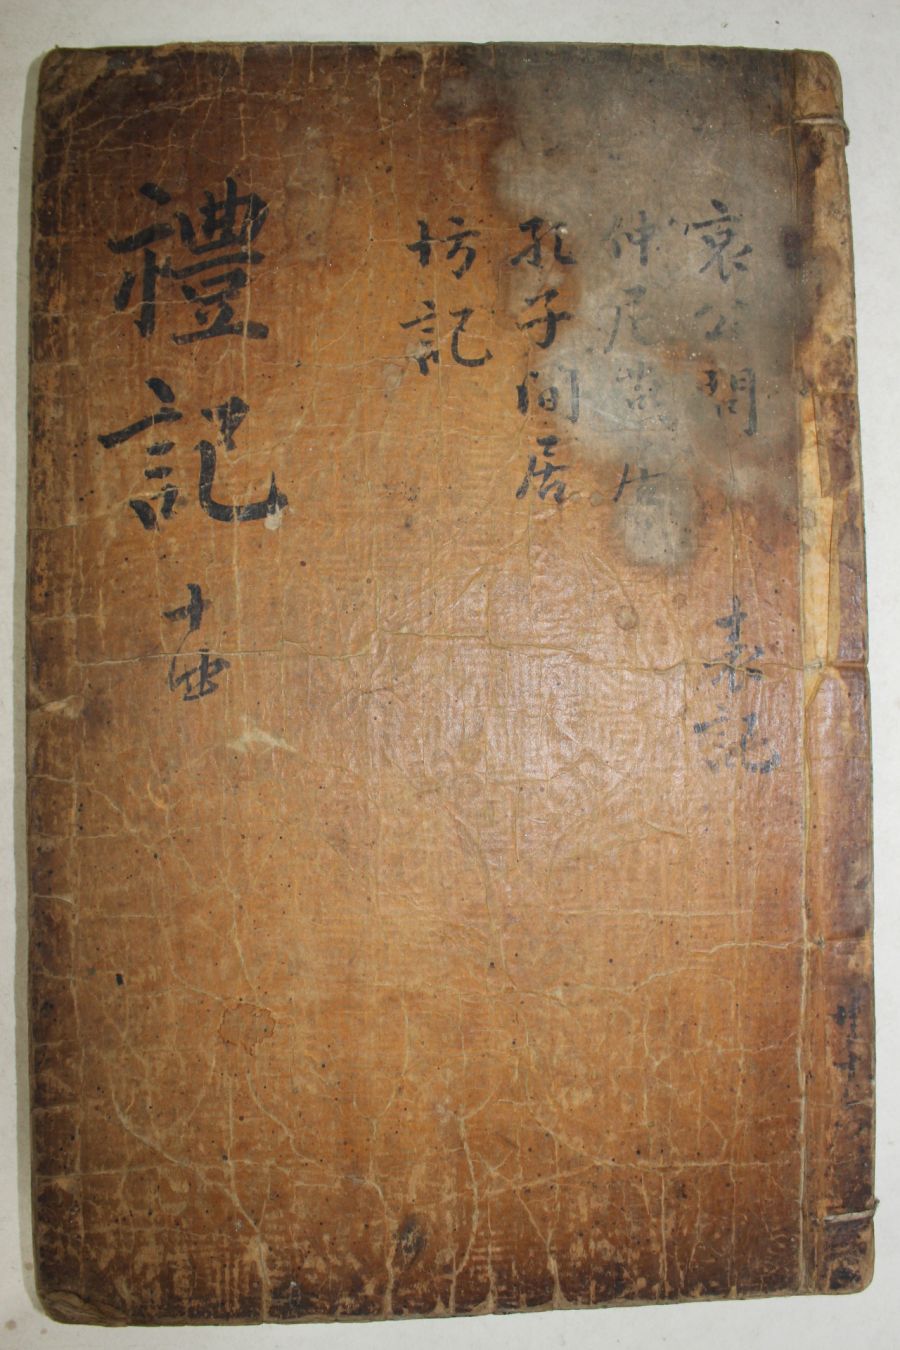 哀公問
表記
仲尼燕居
孔子間居
坊記
禮記
十四